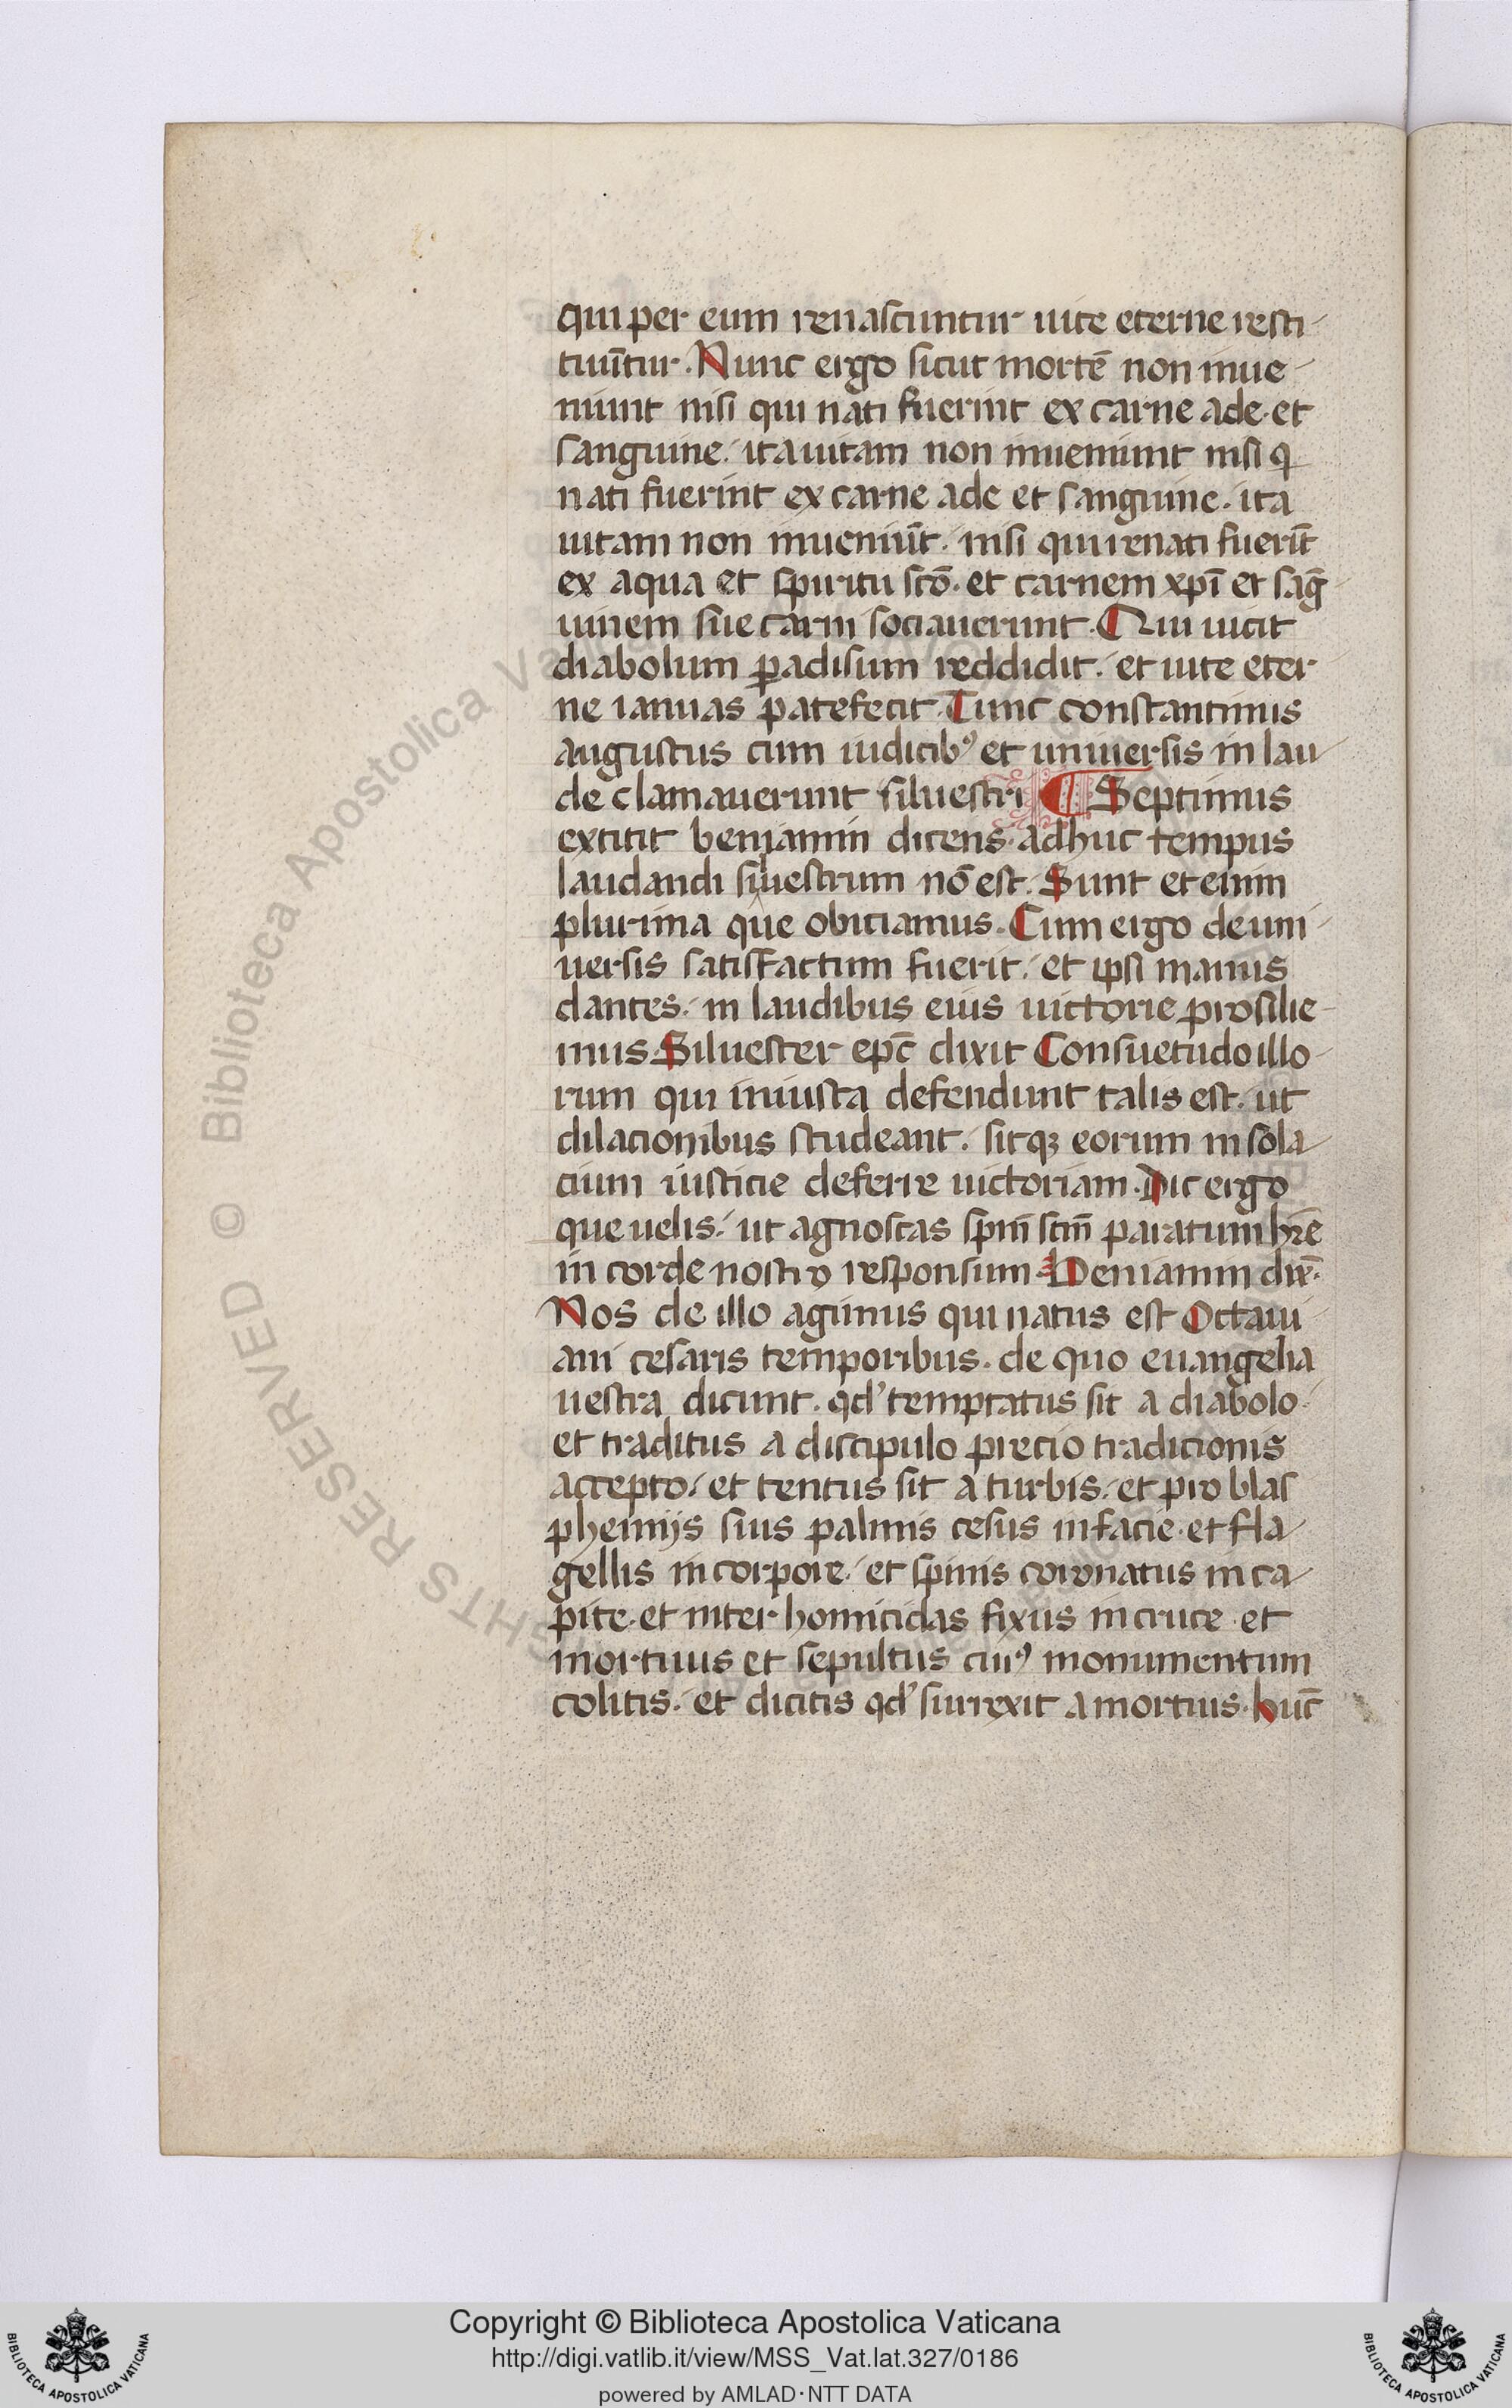 qui per eum renascuntur uite eterne resti-
tuūtur. Nunc ergo sicut mortē non inue-
niunt nisi qui nati fuerint ex carne ade. et
sanguine. ita uitam non inueniunt nisi q
nati fuerint ex carne ade et sanguine. ita
uitam non inueniūt. nisi qui renati fuerūt
ex aqua et spiritu scō. et carnem xpī et sāg-
uinem sue carni sociauerunt. Qui uicit
diabolum ꝑadisum reddidit. et uite eter
ne ianuas patefecit. Tunc constantinus
augustus cum iudicibꝰ et uniuersis in lau-
de clamauerunt siluestri ¶ Septimus
extitit beniamin dicens. adhuc tempus
laudandi siluestrum nō est. Sunt etenim
plurima que obiciamus. Cum ergo de uni-
uersis satisfactum fuerit. et ipsi manus
dantes. in laudibus eius uictorie prosilie-
mus. Siluester epc̄ dixit Consuetudo illo-
rum qui iniusta defendunt talis est. ut
dilacionibus studeant. sitqꝫ eorum in sola-
cium iusticie deferre uictoriam. Dic ergo
que uelis. ut agnoscas spm̄ scm̄ paratum hr̄e
in corde nostro responsum. Beniamin dix̄.
Nos de illo agimus qui natus est Octaui-
ani cesaris temporibus. de quo euangelia
uestra dicunt. qd' temptatus sit a diabolo.
et traditus a discipulo precio tradicionis
accepto. et tentus sit a turbis. et pro blas
phemijs suis palmis cesus in facie. et fla-
gellis in corpore. et spinis coronatus in ca-
pite. et inter homicidas fixus in cruce. et
mortuus et sepultus cuiꝰ monumentum
colitis. et dicitis qd' surrexit a mortuis. huc̄
© Biblioteca Apostolica Vaticana
RIGHTS RESERVED
Copyright © Biblioteca Apostolica Vaticana
http://digi.vatlib.it/view/MSS_Vat.lat.327/0186
powered by AMLAD·NTT DATA
BIBLIOTECA APOSTOLICA VATICANA
BIBLIOTECA APOSTOLICA VATICANA